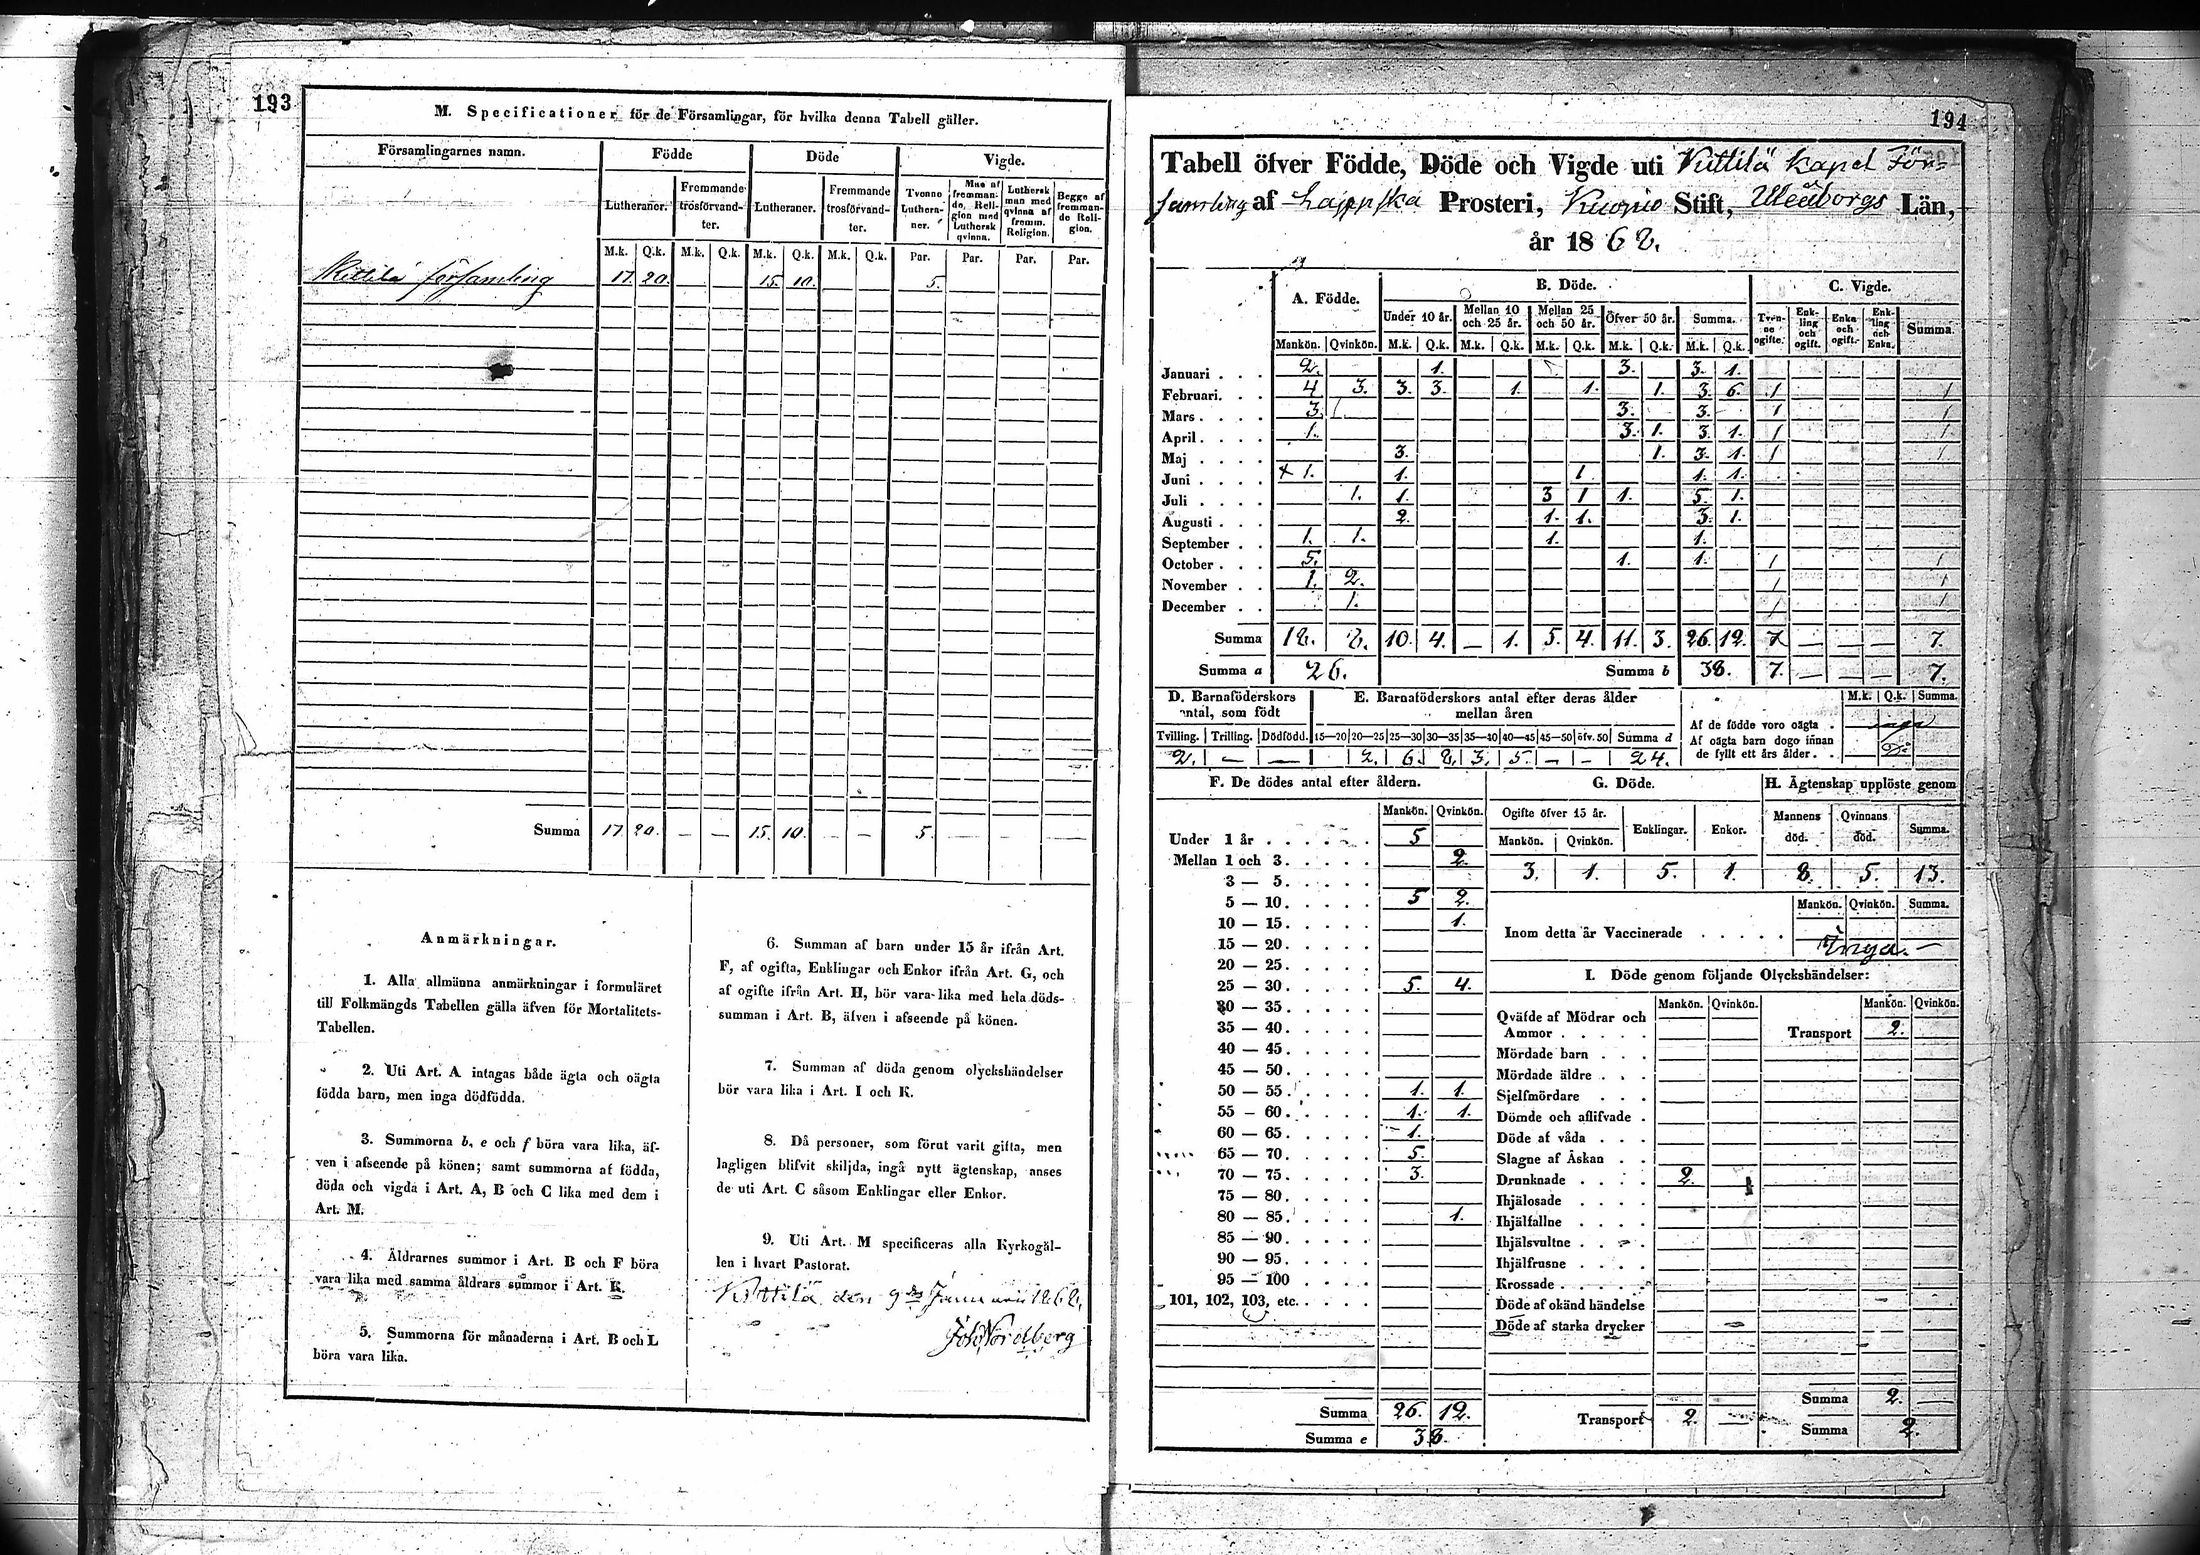 193
M. Specificationer för de Församlingar, för hvilka denna Tabell gäller.
Församlingarnes namn. Födde Döde Vigde.
Lutheraner. Fremmande trosförvandter. Lutheraner. Fremmande trosförvandter. Tvenne Lutheraner. Man af fremmande Religion med Luthersk qvinna. Luthersk man med qvinna af fremm. Religion. Begge af fremmande Religion.
M.k. Q.k. M.k. Q.k. M.k. Q.k. M.k. Q.k. Par. Par. Par. Par.
Kittilä församling 17. 20. 15. 10. 5.
Summa 17. 20. — — 15. 10. — — 5. — — —
Anmärkningar.
1. Alla allmänna anmärkningar i formuläret
till Folkmängds Tabellen gälla äfven för Mortalitets-
Tabellen.
2. Uti Art. A intagas både ägta och oägta
födda barn, men inga dödfödda.
3. Summorna b, e och f böra vara lika, äf-
ven i afseende på könen; samt summorna af födda,
döda och vigda i Art. A, B och C lika med dem i
Art. M.
4. Åldrarnes summor i Art. B och F böra
vara lika med samma åldrars summor i Art. K.
5. Summorna för månaderna i Art. B och L
böra vara lika.
6. Summan af barn under 15 år ifrån Art.
F, af ogifta, Enklingar och Enkor ifrån Art. G, och
af ogifte ifrån Art. H, bör vara lika med hela döds-
summan i Art. B, äfven i afseende på könen.
7. Summan af döda genom olyckshändelser
bör vara lika i Art. I och K.
8. Då personer, som förut varit gifta, men
lagligen blifvit skiljda, ingå nytt ägtenskap, anses
de uti Art. C såsom Enklingar eller Enkor.
9. Uti Art. M specificeras alla Kyrkogäl-
len i hvart Pastorat.
Kittilä den 9 Januarii 1862.
Nordberg
194
Tabell öfver Födde, Döde och Vigde uti Kittilä Kapel För-
samling af Lappska Prosteri, Kuopio Stift, Uleåborgs Län,
år 1862.
A. Födde. B. Döde. C. Vigde.
Under 10 år. Mellan 10 och 25 år. Mellan 25 och 50 år. Öfver 50 år. Summa. Tvenne ogifte. Enkling och ogift. Enka och ogift. Enkling och Enka. Summa.
Mankön. Qvinkön. M.k. Q.k. M.k. Q.k. M.k. Q.k. M.k. Q.k. M.k. Q.k.
Januari . . . 2. 1. 3. 3. 1.
Februari. . . 4 3. 3. 3. 1. 1. 1. 3. 6. 1 1
Mars . . . . 3. 3. 3. 1 1
April . . . . 1. 3. 1. 3. 1. 1 1
Maj . . . . 3. 1. 3. 1. 1 1
Juni . . . . + 1. 1. 1. 1. 1.
Juli . . . . 1. 1. 3 1 1. 5. 1.
Augusti . . . 2. 1. 1. 3. 1.
September . . 1. 1. 1. 1.
October . . . 5. 1. 1. 1 1
November . . 1. 2. 1 1
December . . 1. 1 1
Summa 18. 8. 10. 4. — 1. 5. 4. 11. 3. 26. 12. 7 — — — 7.
Summa a 26. Summa b 38. 7. — — — 7.
D. Barnaföderskors antal, som födt E. Barnaföderskors antal efter deras ålder mellan åren M.k. Q.k. Summa.
Tvilling. Trilling. Dödfödd. 15—20 20—25 25—30 30—35 35—40 40—45 45—50 öfv. 50 Summa d
2. — — 2. 6. 8. 3. 5. — — 24.
Af de födde voro oägta .
Af oägta barn dogo innan
de fyllt ett års ålder . .
F. De dödes antal efter åldern. G. Döde. H. Ägtenskap upplöste genom
Mankön. Qvinkön. Ogifte öfver 15 år. Enklingar. Enkor. Mannens död. Qvinnans död. Summa.
Mankön. Qvinkön.
3. 1. 5. 1. 8. 5. 13.
Under 1 år . . . . . . 5
Mellan 1 och 3. . . . . 2.
3 — 5. . . . .
5 — 10. . . . . 5 2.
10 — 15. . . . . 1.
15 — 20. . . . .
20 — 25. . . . .
25 — 30. . . . . 5. 4.
30 — 35. . . . .
35 — 40. . . . .
40 — 45. . . . .
45 — 50. . . . .
50 — 55. . . . . 1. 1.
55 — 60. . . . . 1. 1.
60 — 65. . . . . 1.
65 — 70. . . . . 5.
70 — 75. . . . . 3.
75 — 80. . . . .
80 — 85. . . . . 1.
85 — 90. . . . .
90 — 95. . . . .
95 — 100 . . . .
101, 102, 103, etc. . . . .
Summa 26. 12.
Summa e 38.
Mankön. Qvinkön. Summa.
Inom detta år Vaccinerade . . . . . Inga. —
I. Döde genom följande Olyckshändelser:
Mankön. Qvinkön. Mankön. Qvinkön.
Qväfde af Mödrar och
Ammor . . . . . Transport 2.
Mördade barn . . .
Mördade äldre . . .
Sjelfmördare . . .
Dömde och aflifvade .
Döde af våda . . .
Slagne af Åskan . .
Drunknade . . . . 2.
Ihjälosade . . . .
Ihjälfallne . . . .
Ihjälsvultne . . . .
Ihjälfrusne . . . .
Krossade . . . . .
Döde af okänd händelse
Döde af starka drycker
Summa 2. —
Transport 2. —
Summa 2.